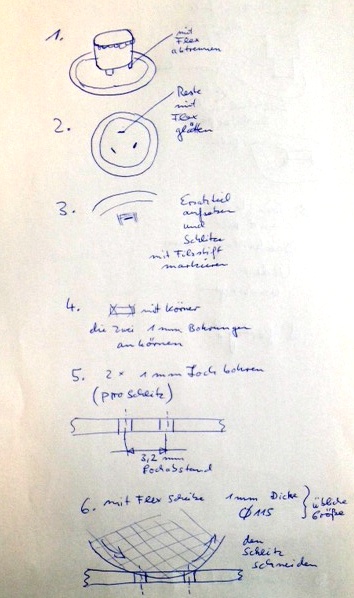 1.
mit
Flex
abtrennen
2.
Reste
mit
Flex
glätten
3.
Ersatzteil
aufsetzen
und
Schlitze
mit Filzstift
markieren
4.
mit Körner
die zwei 1 mm Bohrungen
ankörnen
5. 2 x 1 mm Loch bohren
(pro Schlitz)
3,2 mm
Lochabstand
6. mit Flex Scheibe 1 mm Dicke
∅ 115
übliche
Größe
den
Schlitz
schneiden